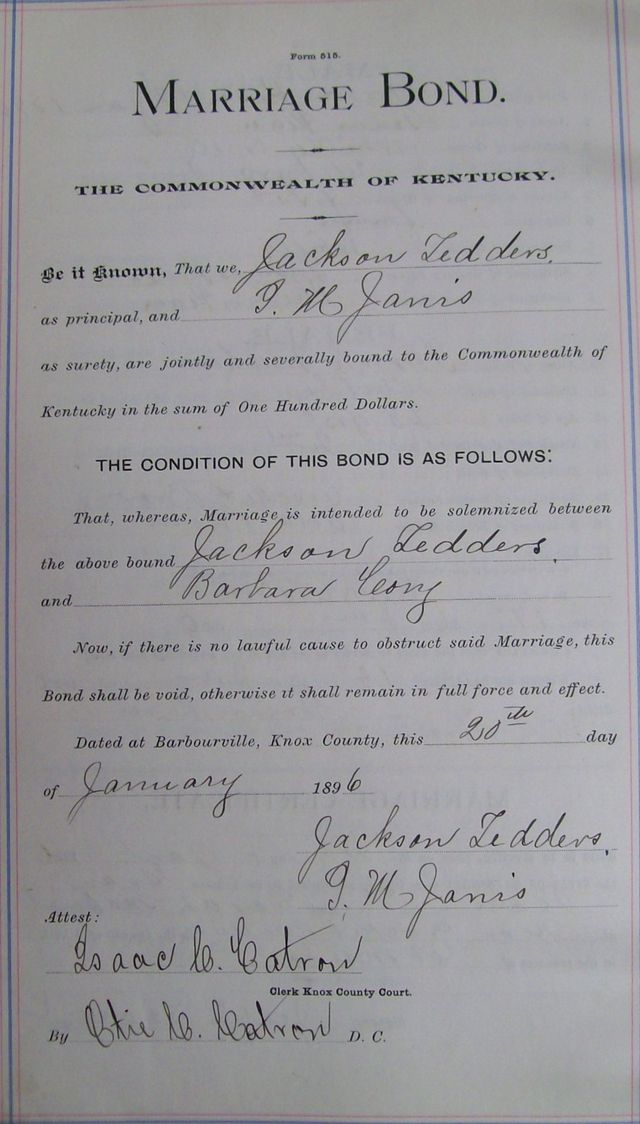 Form 515.
MARRIAGE BOND.
THE COMMONWEALTH OF KENTUCKY.
Be it Known, That we, Jackson Ledders,
as principal, and G. M Janis
as surety, are jointly and severally bound to the Commonwealth of
Kentucky in the sum of One Hundred Dollars.
THE CONDITION OF THIS BOND IS AS FOLLOWS:
That, whereas, Marriage is intended to be solemnized between
the above bound Jackson Ledders,
and Barbara
Now, if there is no lawful cause to obstruct said Marriage, this
Bond shall be void, otherwise it shall remain in full force and effect.
Dated at Barbourville, Knox County, this 20th day
of January 1896
Jackson Ledders,
G. M Janis
Attest:
Isaac C. Catron
Clerk Knox County Court.
By C. Catron D. C.